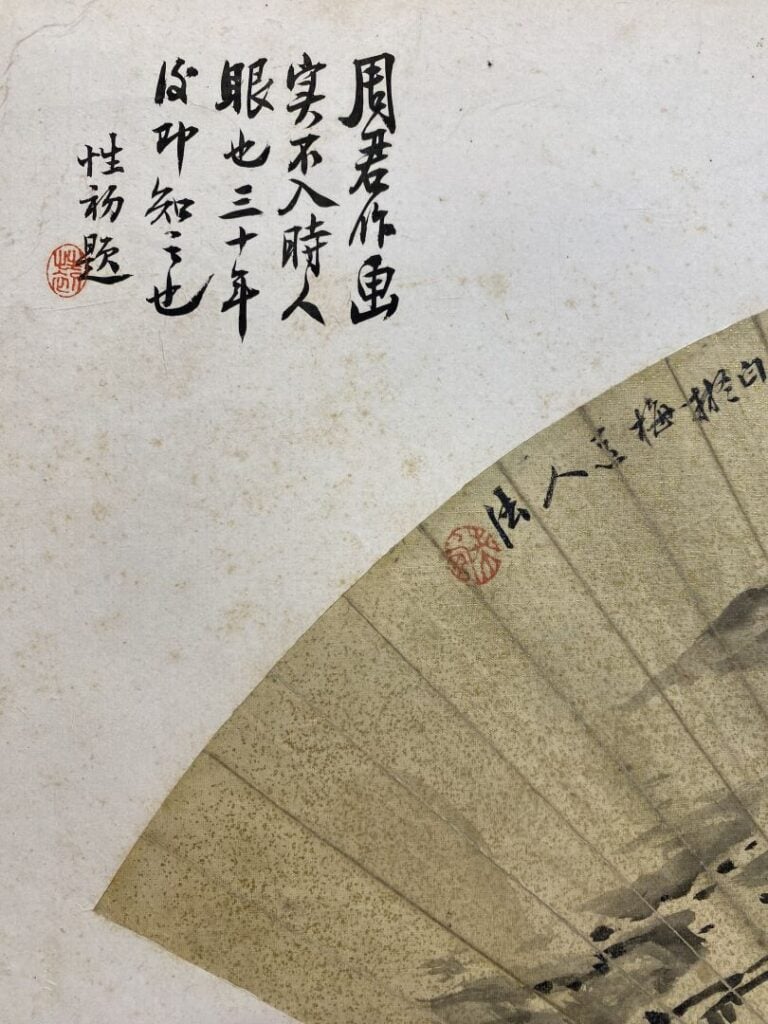 周君作画
实不入時人
眼也三十年
後即知之也
性初题
白於梅道人法
性初